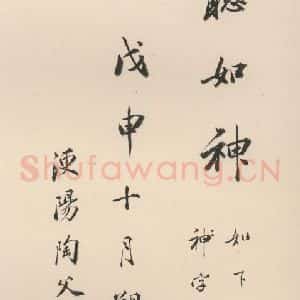 聽如神
如下
神字
戊申十月
溧陽陶父
Shufawang.CN